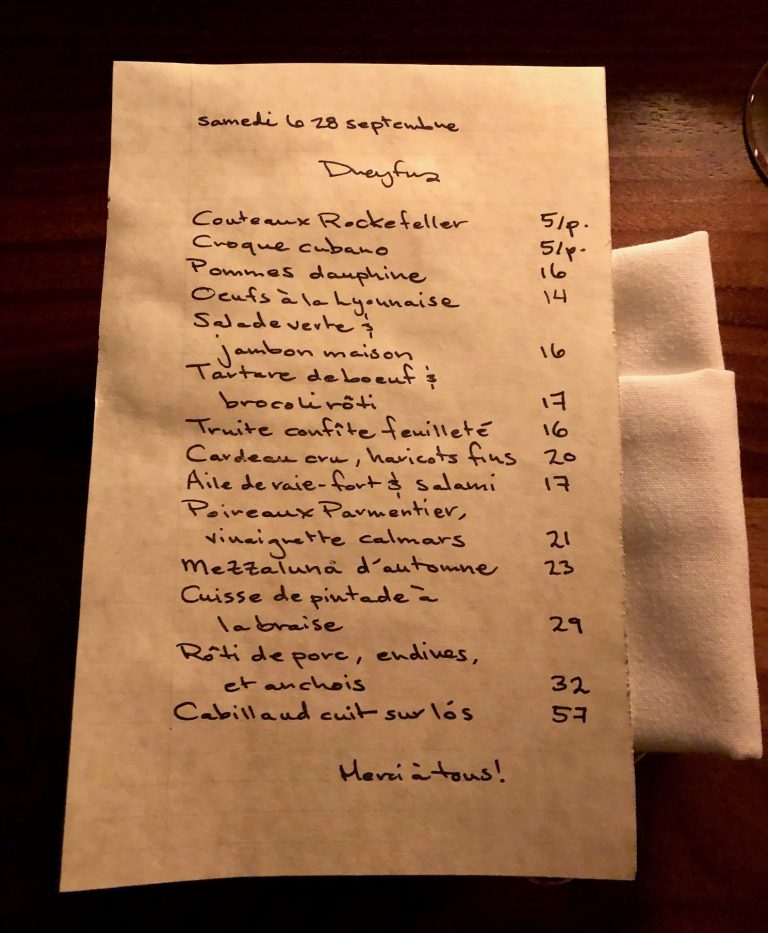 samedi le 28 septembre
Dreyfus
Couteaux Rockefeller 5/p.
Croque cubano 5/p.
Pommes dauphine 16
Oeufs à la lyonnaise 14
Salade verte &
jambon maison 16
Tartare de boeuf &
brocoli rôti 17
Truite confite feuilleté 16
Cardeau cru, haricots fins 20
Aile de raie-fort & salami 17
Poireaux Parmentier,
vinaigrette calmars 21
Mezzaluna d'automne 23
Cuisse de pintade à
la braise 29
Rôti de porc, endives,
et anchois 32
Cabillaud cuit sur lós 57
Merci à tous!